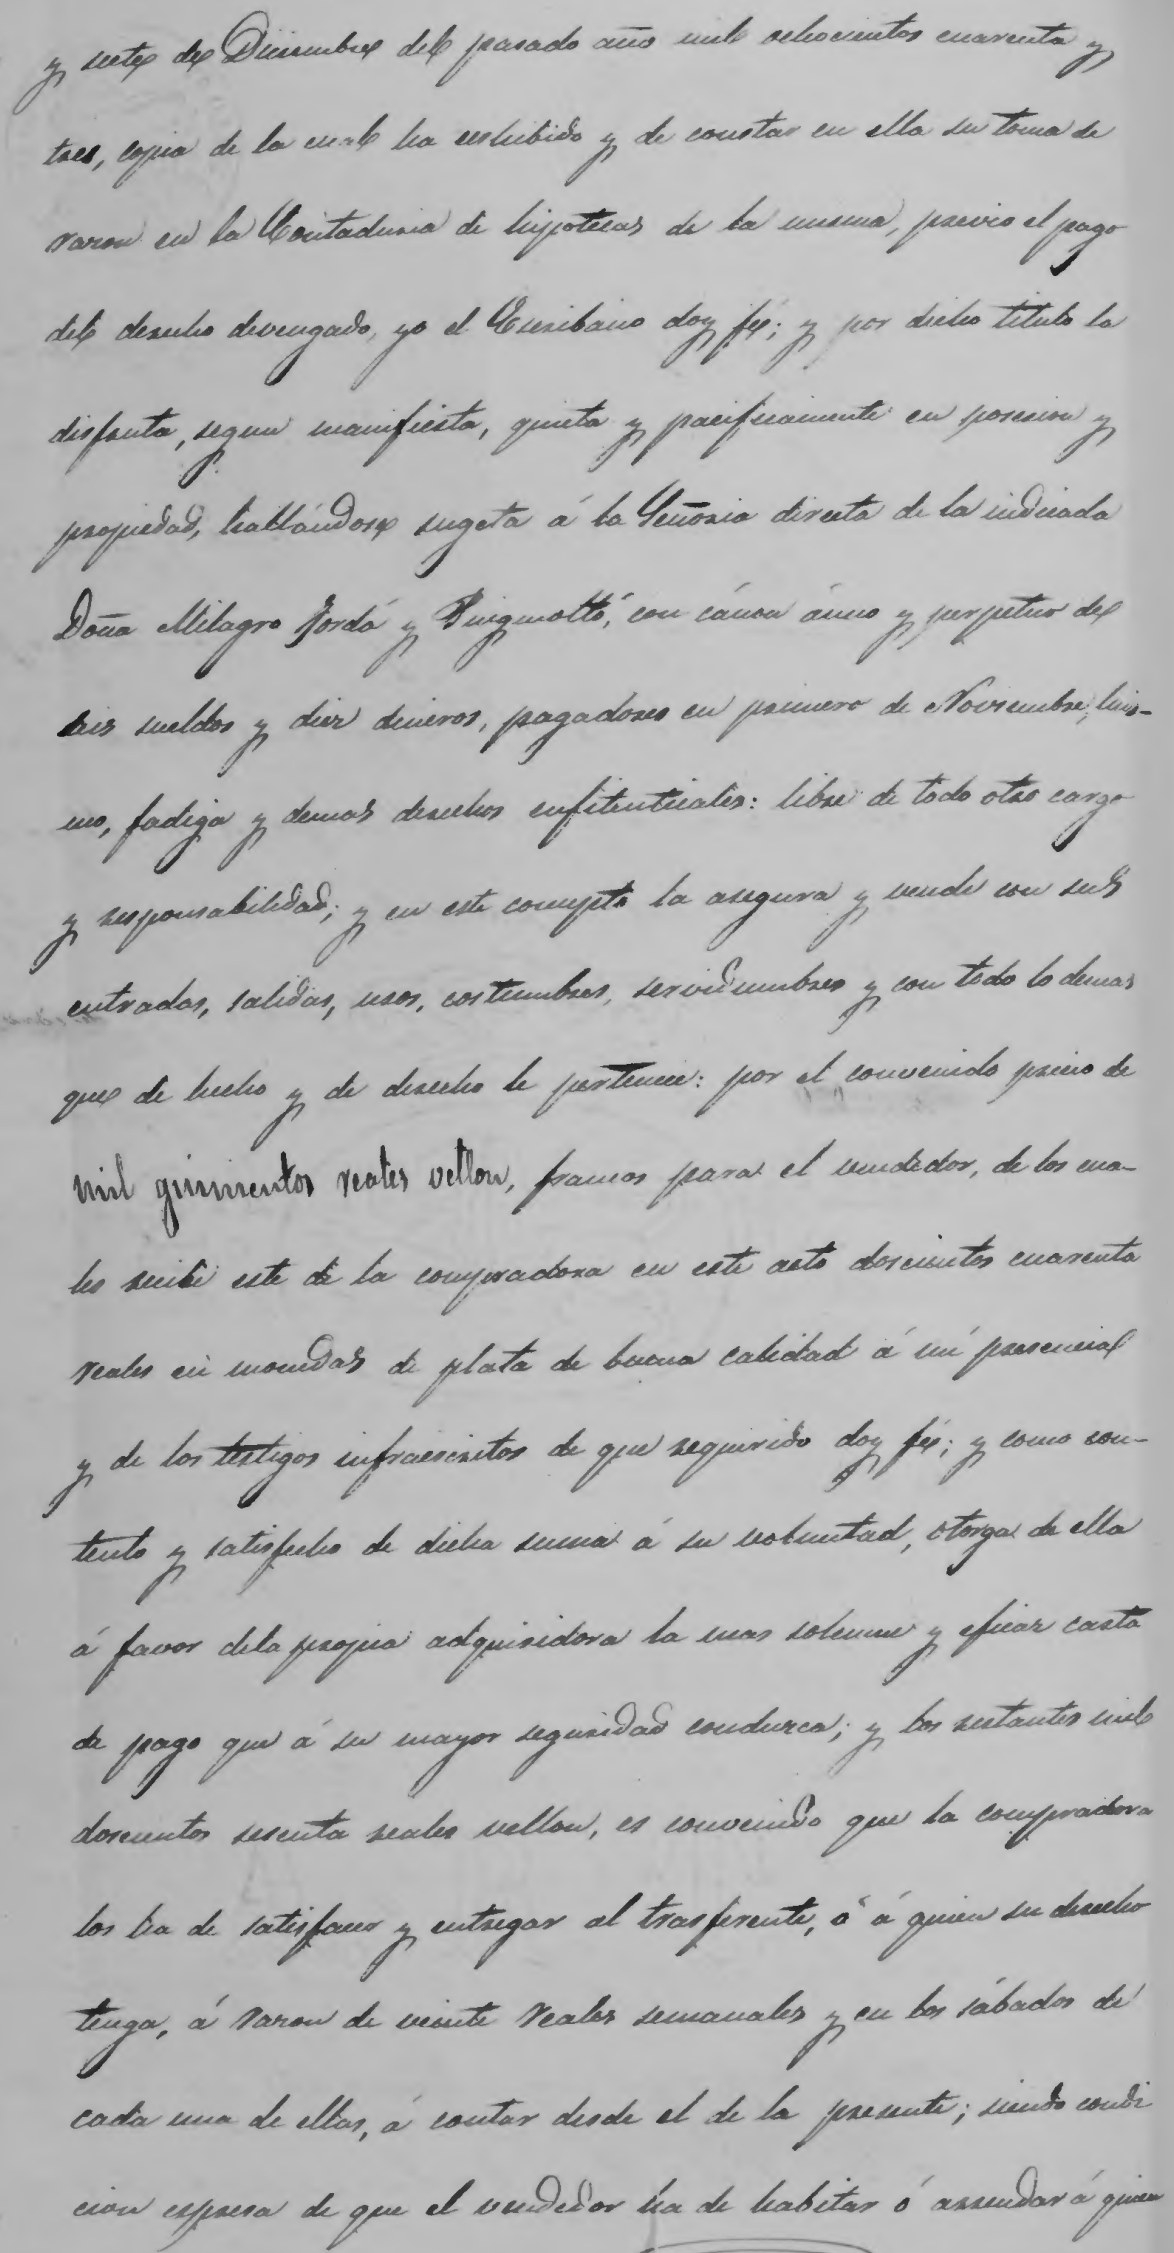 y siete de Diciembre del pasado año mil ochocientos cuarenta y
tres, copia de la cual ha exhibido y de constar en ella su toma de
razon en la Contaduria de hipotecas de la misma, previo el pago
del derecho devengado, yo el Escribano doy fé; y por dicho titulo la
disfruta, segun manifiesta, quieta y pacificamente en posesion y
propiedad, hallándose sugeta á la Señoria directa de la indicada
Doña Milagro Jordá y Puigmoltó, con cánon ánuo y perpetuo de
seis sueldos y diez dineros, pagadores en primero de Noviembre, luis-
mo, fadiga y demas derechos enfiteuticales: libre de todo otro cargo
y responsabilidad; y en este concepto la asegura y vende con sus
entradas, salidas, usos, costumbres, servidumbres y con todo lo demas
que de hecho y de derecho le pertenece: por el convenido precio de
mil quinientos reales vellon, francos para el vendedor, de los cua-
les recibe este de la compradora en este acto doscientos cuarenta
reales en monedas de plata de buena calidad á mi presencial
y de los testigos infraescritos de que requirido doy fé; y como con-
tento y satisfecho de dicha suma á su voluntad, otorga de ella
á favor dela propia adquisidora la mas solemne y eficaz carta
de pago que á su mayor seguridad conduzca; y los restantes mil
doscientos sesenta reales vellon, es convenido que la compradora
los ha de satisfacer y entregar al trasferente, ó á quien su derecho
tenga, á razon de veinte reales semanales y en los sábados de
cada una de ellas, á contar desde el de la presente; siendo condi
cion espresa de que el vendedor ha de habitar ó arrendar á quien